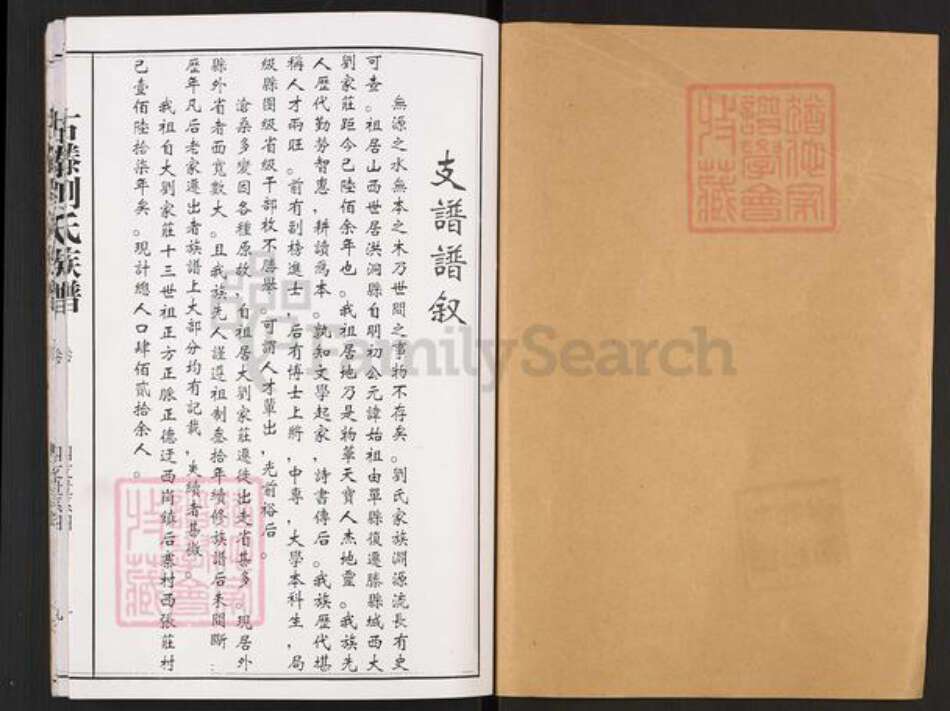 支譜譜叙
無源之水無本之木乃世間之事物不存矣。劉氏家族淵源流長有史
可查。祖居山西世居洪洞縣自明初公元諱始祖由單縣復遷滕縣城西大
劉家莊距今已陸佰余年也。我祖居地乃是物華天寶人杰地靈。我族先
人歷代勤勞智惠,耕讀為本。説知文學起家,詩書傳后。我族歷代堪
稱人才兩旺。前有副榜進士,后有博士上將,中專,大學本科生,局
級縣團級省級干部枚不勝舉。可謂人才輩出,光前裕后。
滄桑多變因各種原故,自祖居大劉家莊遷徙出走省甚多。現居外
縣外省者面寬數大。且我族先人謹遵祖制叁拾年續修族譜后未間斷…
歷年凡后老家遷出者族譜上大部分均有記載,失續者甚微。
我祖自大劉家莊十三世祖正方正脈正德迁西崗鎮后寨村西張莊村
已壹佰陸拾柒年矣。現計總人口肆佰貳拾余人。
古滕劉氏族譜
卷
FamilySearch
譜學會
收藏